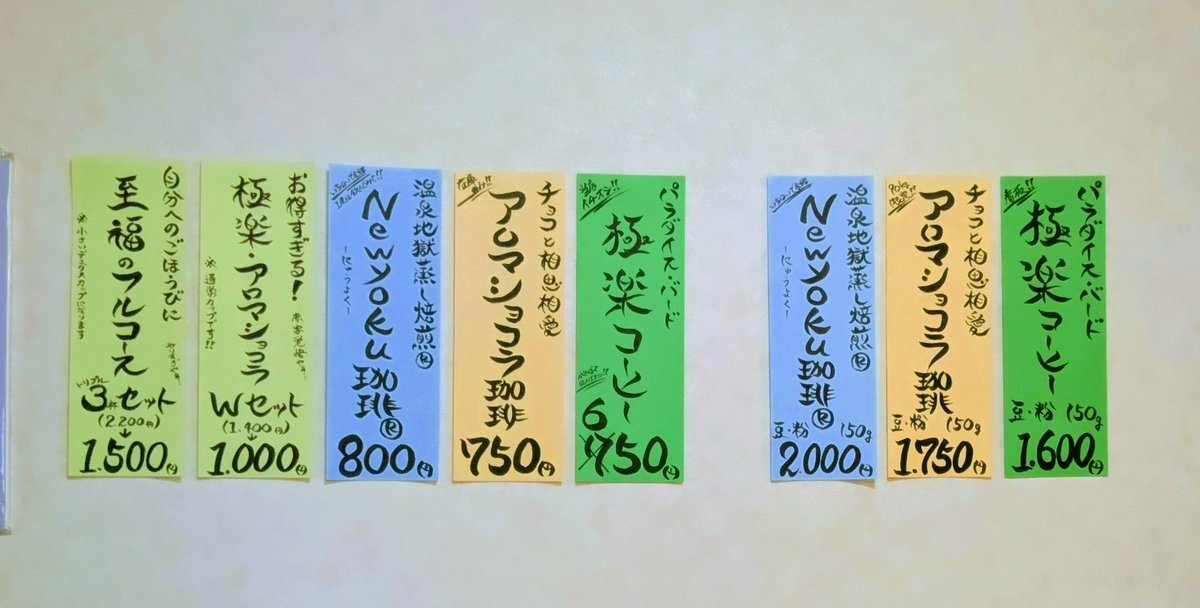 パラダイス・バード
看板!!
極楽コーヒー
豆・粉 150g
1.600円
チョコと相思相愛
アロマショコラ珈琲
豆・粉 150g
1.750円
温泉地獄蒸し焙煎®
Newyoku珈琲®
－にゅうよく－
豆・粉 150g
2.000円
パラダイス・バード
当店イチオシ!!
極楽コーヒー
6
750円
チョコと相思相愛
アロマショコラ珈琲
750円
温泉地獄蒸し焙煎®
Newyoku珈琲®
－にゅうよく－
800円
お得すぎる!
極楽・アロマショコラ
※通常カップです!!
Wセット
(1.400円)
1.000円
自分へのごほうびに
至福のフルコース
※小さいデミタスカップになります
トリプル
3杯セット
(2.200円)
1.500円